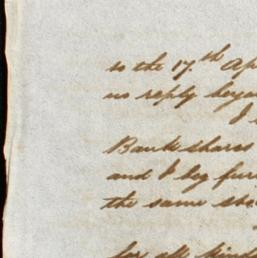 to the 17.th Ap
no reply beyo
I
Bank shares
and I beg fur
the same sta
for all kind